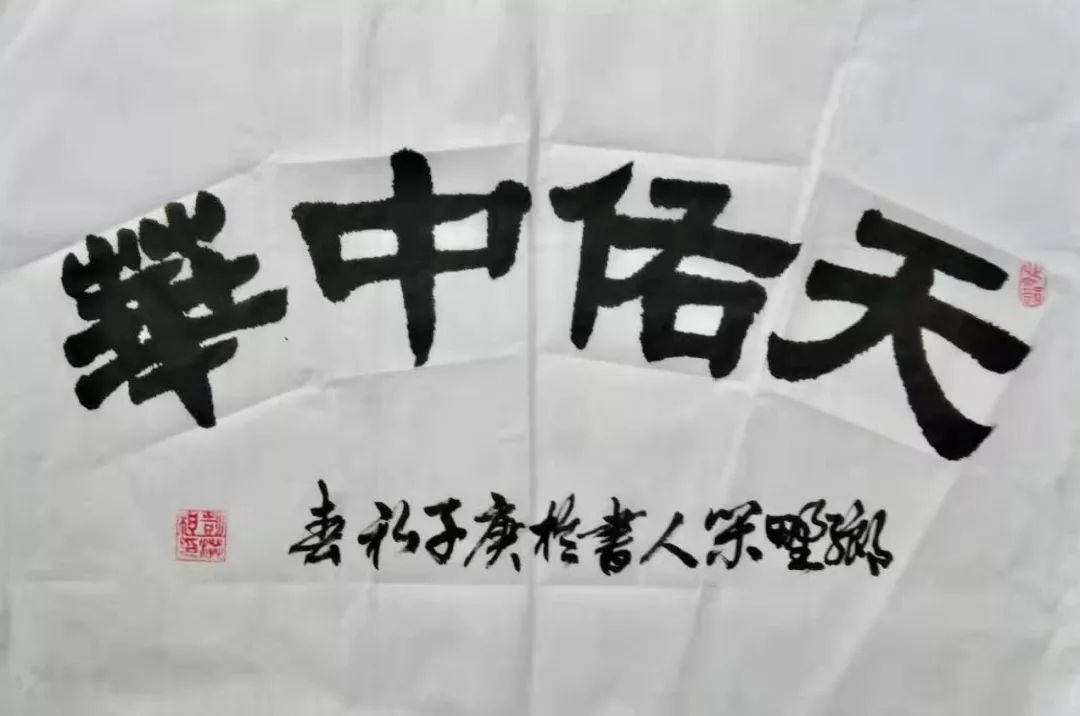 天佑中華
鄉野閑人書於庚子初春